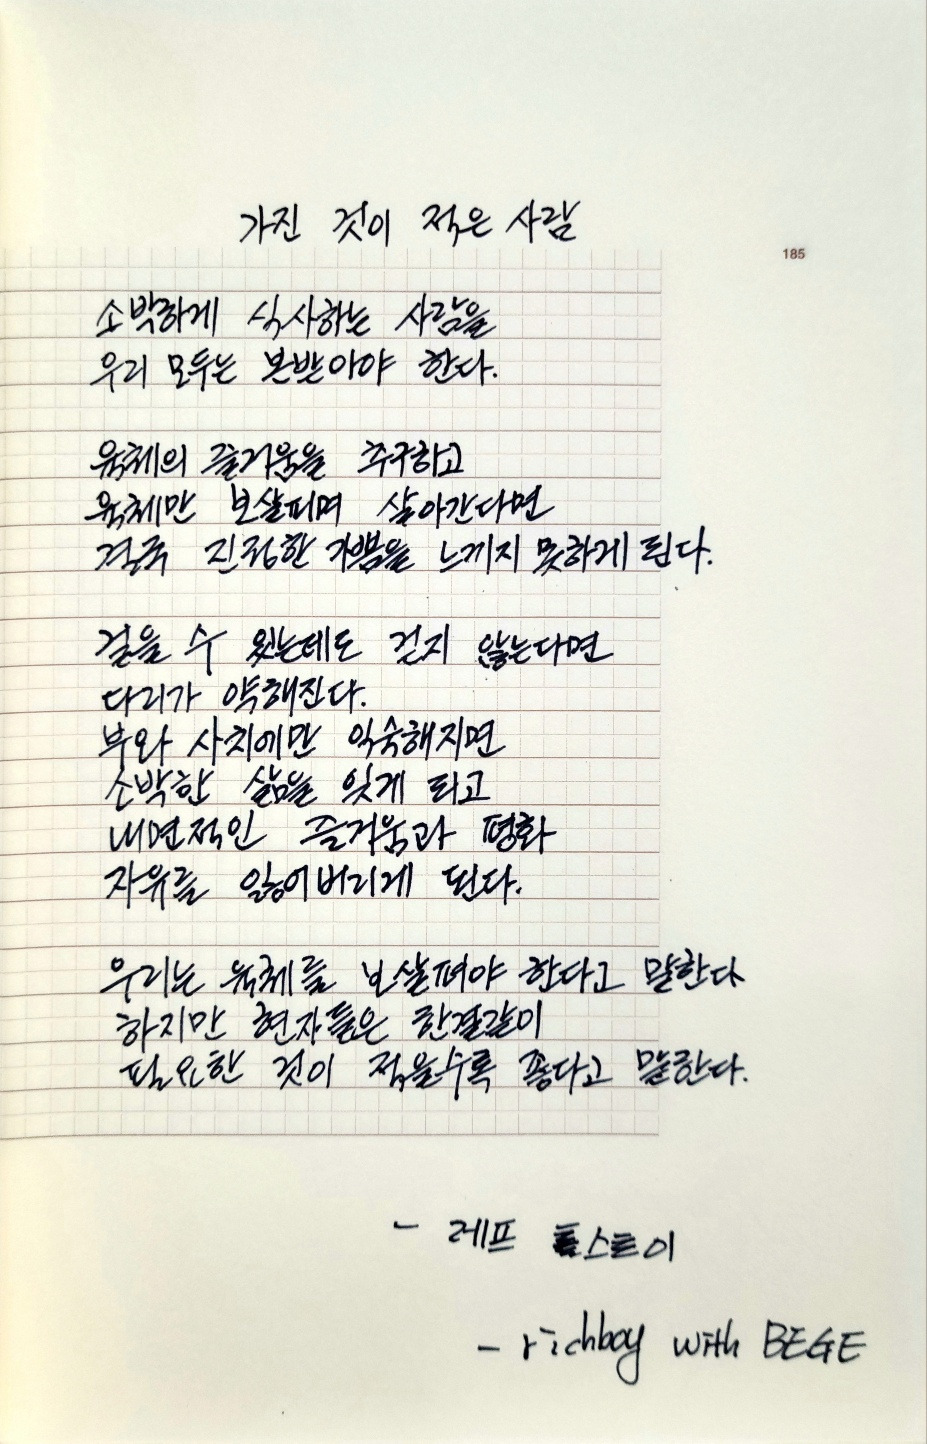 가진 것이 적은 사람
185
소박하게 식사하는 사람을
우리 모두는 본받아야 한다.
육체의 즐거움을 추구하고
육체만 보살피며 살아간다면
결국 진정한 기쁨을 느끼지 못하게 된다.
걸을 수 있는데도 걷지 않는다면
다리가 약해진다.
부와 사치에만 익숙해지면
소박한 삶을 잊게 되고
내면적인 즐거움과 평화
자유를 잃어버리게 된다.
우리는 육체를 보살펴야 한다고 말한다
하지만 현자들은 한결같이
필요한 것이 적을수록 좋다고 말한다.
- 레프 톨스토이
- richboy with BEGE